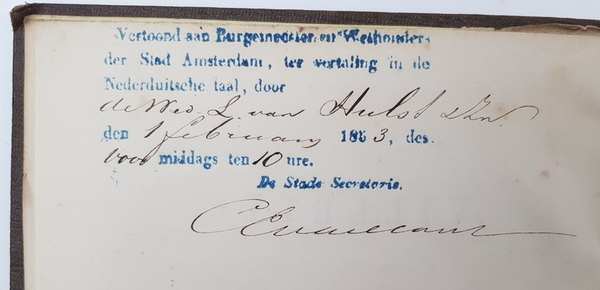 Vertoond aan Burgemeester en Wethouders
der Stad Amsterdam, ter vertaling in de
Nederduitsche taal, door
de Wed. L. van Hulst
den 1 februarij 1863, des
voor middags ten 10 ure.
De Stads Secretaris.